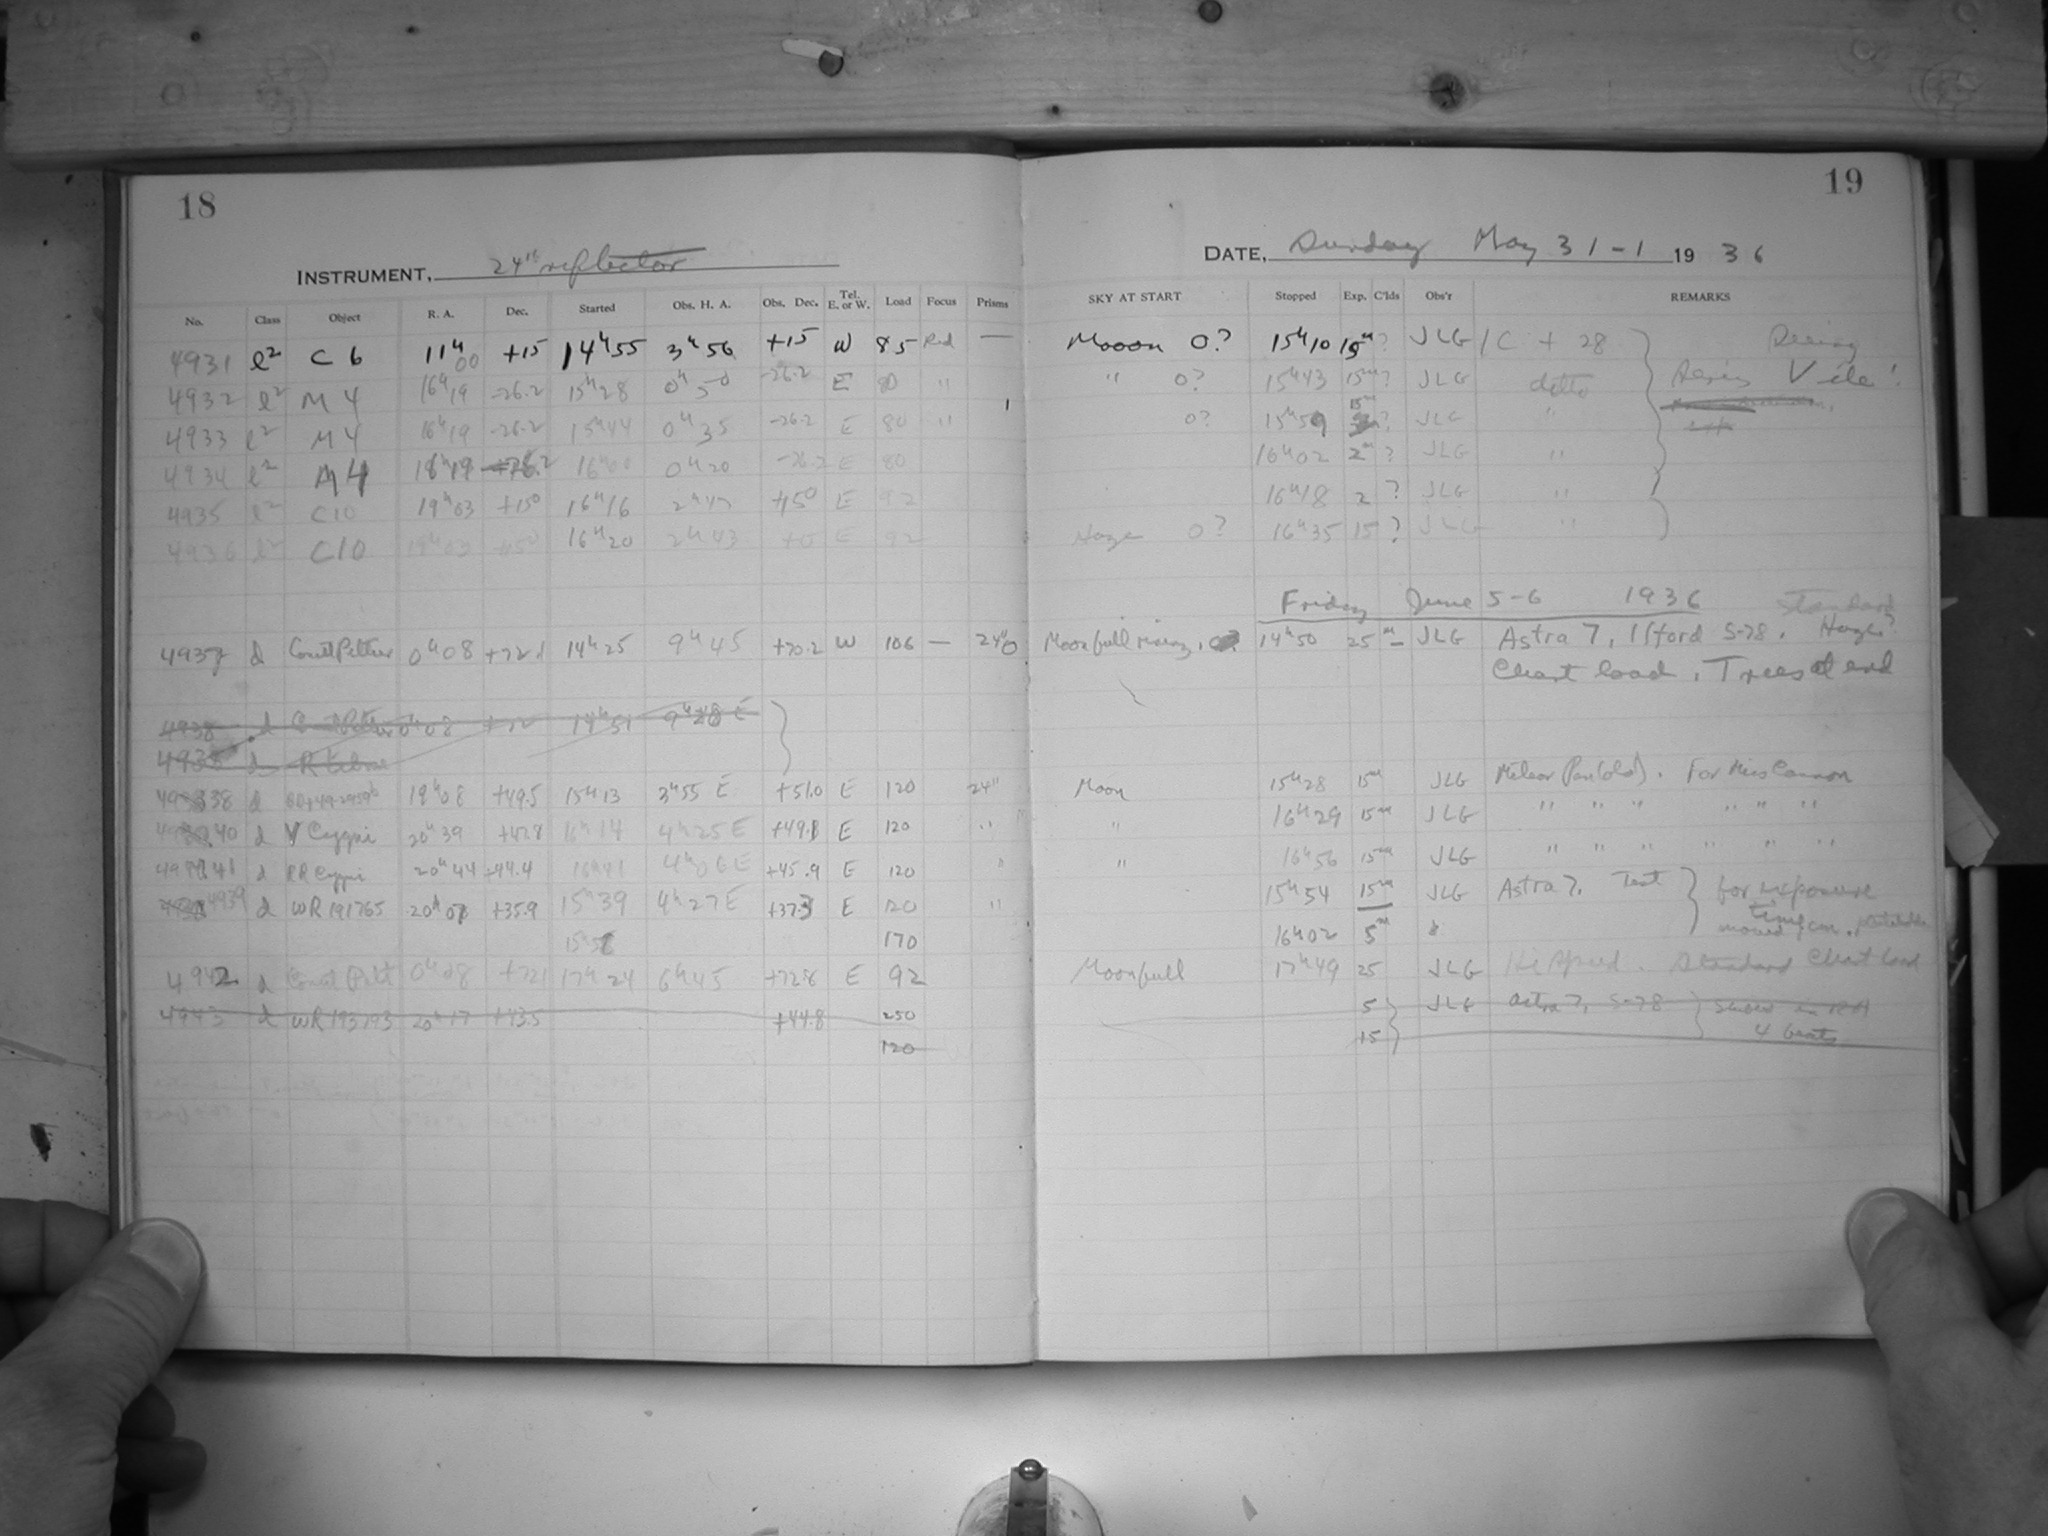 18
INSTRUMENT, 24" reflector
No. Class Object R. A. Dec. Started Obs. H. A. Obs. Dec. Tel. E. or W. Load Focus Prisms
4931 l² C 6 11ʰ00 +15 14ʰ55 3ʰ56 +15 W 85 Red —
4932 l² M 4 16ʰ19 -26.2 15ʰ28 0ʰ50 -26.2 E 80 "
4933 l² M 4 16ʰ19 -26.2 15ʰ44 0ʰ35 -26.2 E 80 "
4934 l² M 4 16ʰ19 -26.2 16ʰ00 0ʰ20 -26.2 E 80
4935 l² C10 19ʰ03 +15⁰ 16ʰ16 2ʰ47 +15⁰ E 92
4936 l² C10 19ʰ03 16ʰ20 2ʰ43 E 92
4937 d Comet Peltier 0ʰ08 +72.1 14ʰ25 9ʰ45 +70.2 W 106 — 24"0
4938 d 0ʰ08 +72 14ʰ51 9ʰ28 E
4938 d R
4938 d 19ʰ08 +49.5 15ʰ13 3ʰ55 E +51.0 E 120 24"
40 d V Cygni 20ʰ39 +47.8 16ʰ14 4ʰ25 E +49.8 E 120 "
41 d Cygni 20ʰ44 +44.4 16ʰ41 4ʰ06 E +45.9 E 120 "
4939 d WR 191765 20ʰ07 +35.9 15ʰ39 4ʰ27 E +37.3 E 120 "
170
4942 d Comet Pelt 0ʰ08 +72.1 17ʰ24 6ʰ45 +72.8 E 92
4943 d WR 193793 20ʰ17 +43.5 +44.8 250
120
19
DATE, Sunday May 31-1 19 36
SKY AT START Stopped Exp. C'lds Obs'r REMARKS
Mooon 0? 15ʰ10 15ᵐ ? JLG 1C + 28 Seeing
" 0? 15ʰ43 15ᵐ ? JLG ditto Vile!
0? 15ʰ59 15ᵐ ? JLG "
16ʰ02 2ᵐ ? JLG "
16ʰ18 2 ? JLG "
Haze 0? 16ʰ35 15 ? JLG "
Friday June 5-6 1936 Standard
Moon full rising, 14ʰ50 25ᵐ — JLG Astra 7, Ilford S-78. Haze?
Chart load, Trees at end
Moon 15ʰ28 15ᵐ JLG Meteor Pan (old). For Miss Cannon
" 16ʰ29 15ᵐ JLG " " " " " "
" 16ʰ56 15ᵐ JLG " " " " " " "
15ʰ54 15ᵐ JLG Astra 7, Test for exposure
16ʰ02 5ᵐ time
Moonfull 17ʰ49 25 JLG Hi Speed. Standard Chart load
5 JLG Astra 7, S-78
15 4 beats